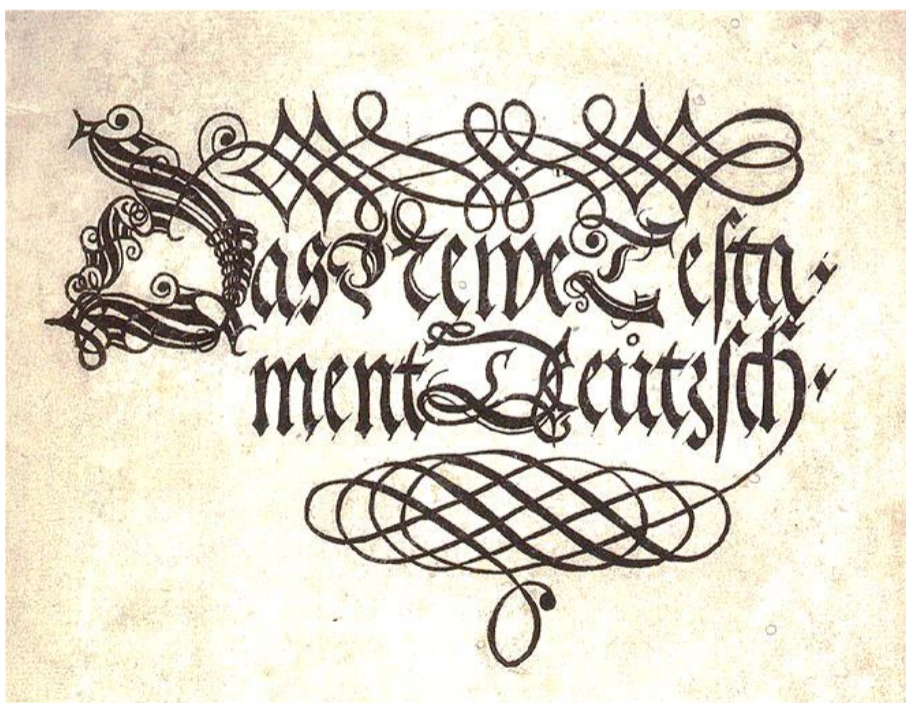 Das Newe Teſta·
ment Deůtzſch·